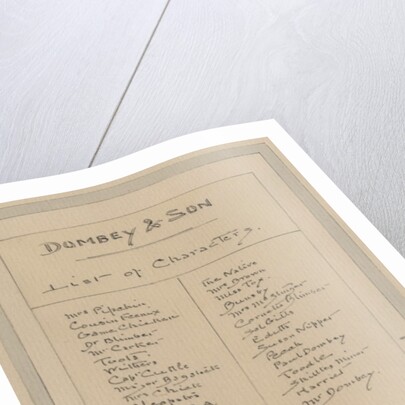 DOMBEY & SON
List of Characters.
Mrs Pipchin
Cousin Feenix
Game Chicken
Dr Blimber
Mr Carker
Toots
Walters
Capt Cuttle
Major Bagstock
Mrs Chick
Cleopatra
The Native
Mrs Brown
Miss Tox
Bunsby
Mrs McStinger
Cornelia Blimber
Sol Gills
Edith
Susan Nipper
Perch
Paul Dombey
Toodle
Skittles Minor
Harriet
Mr Dombey.